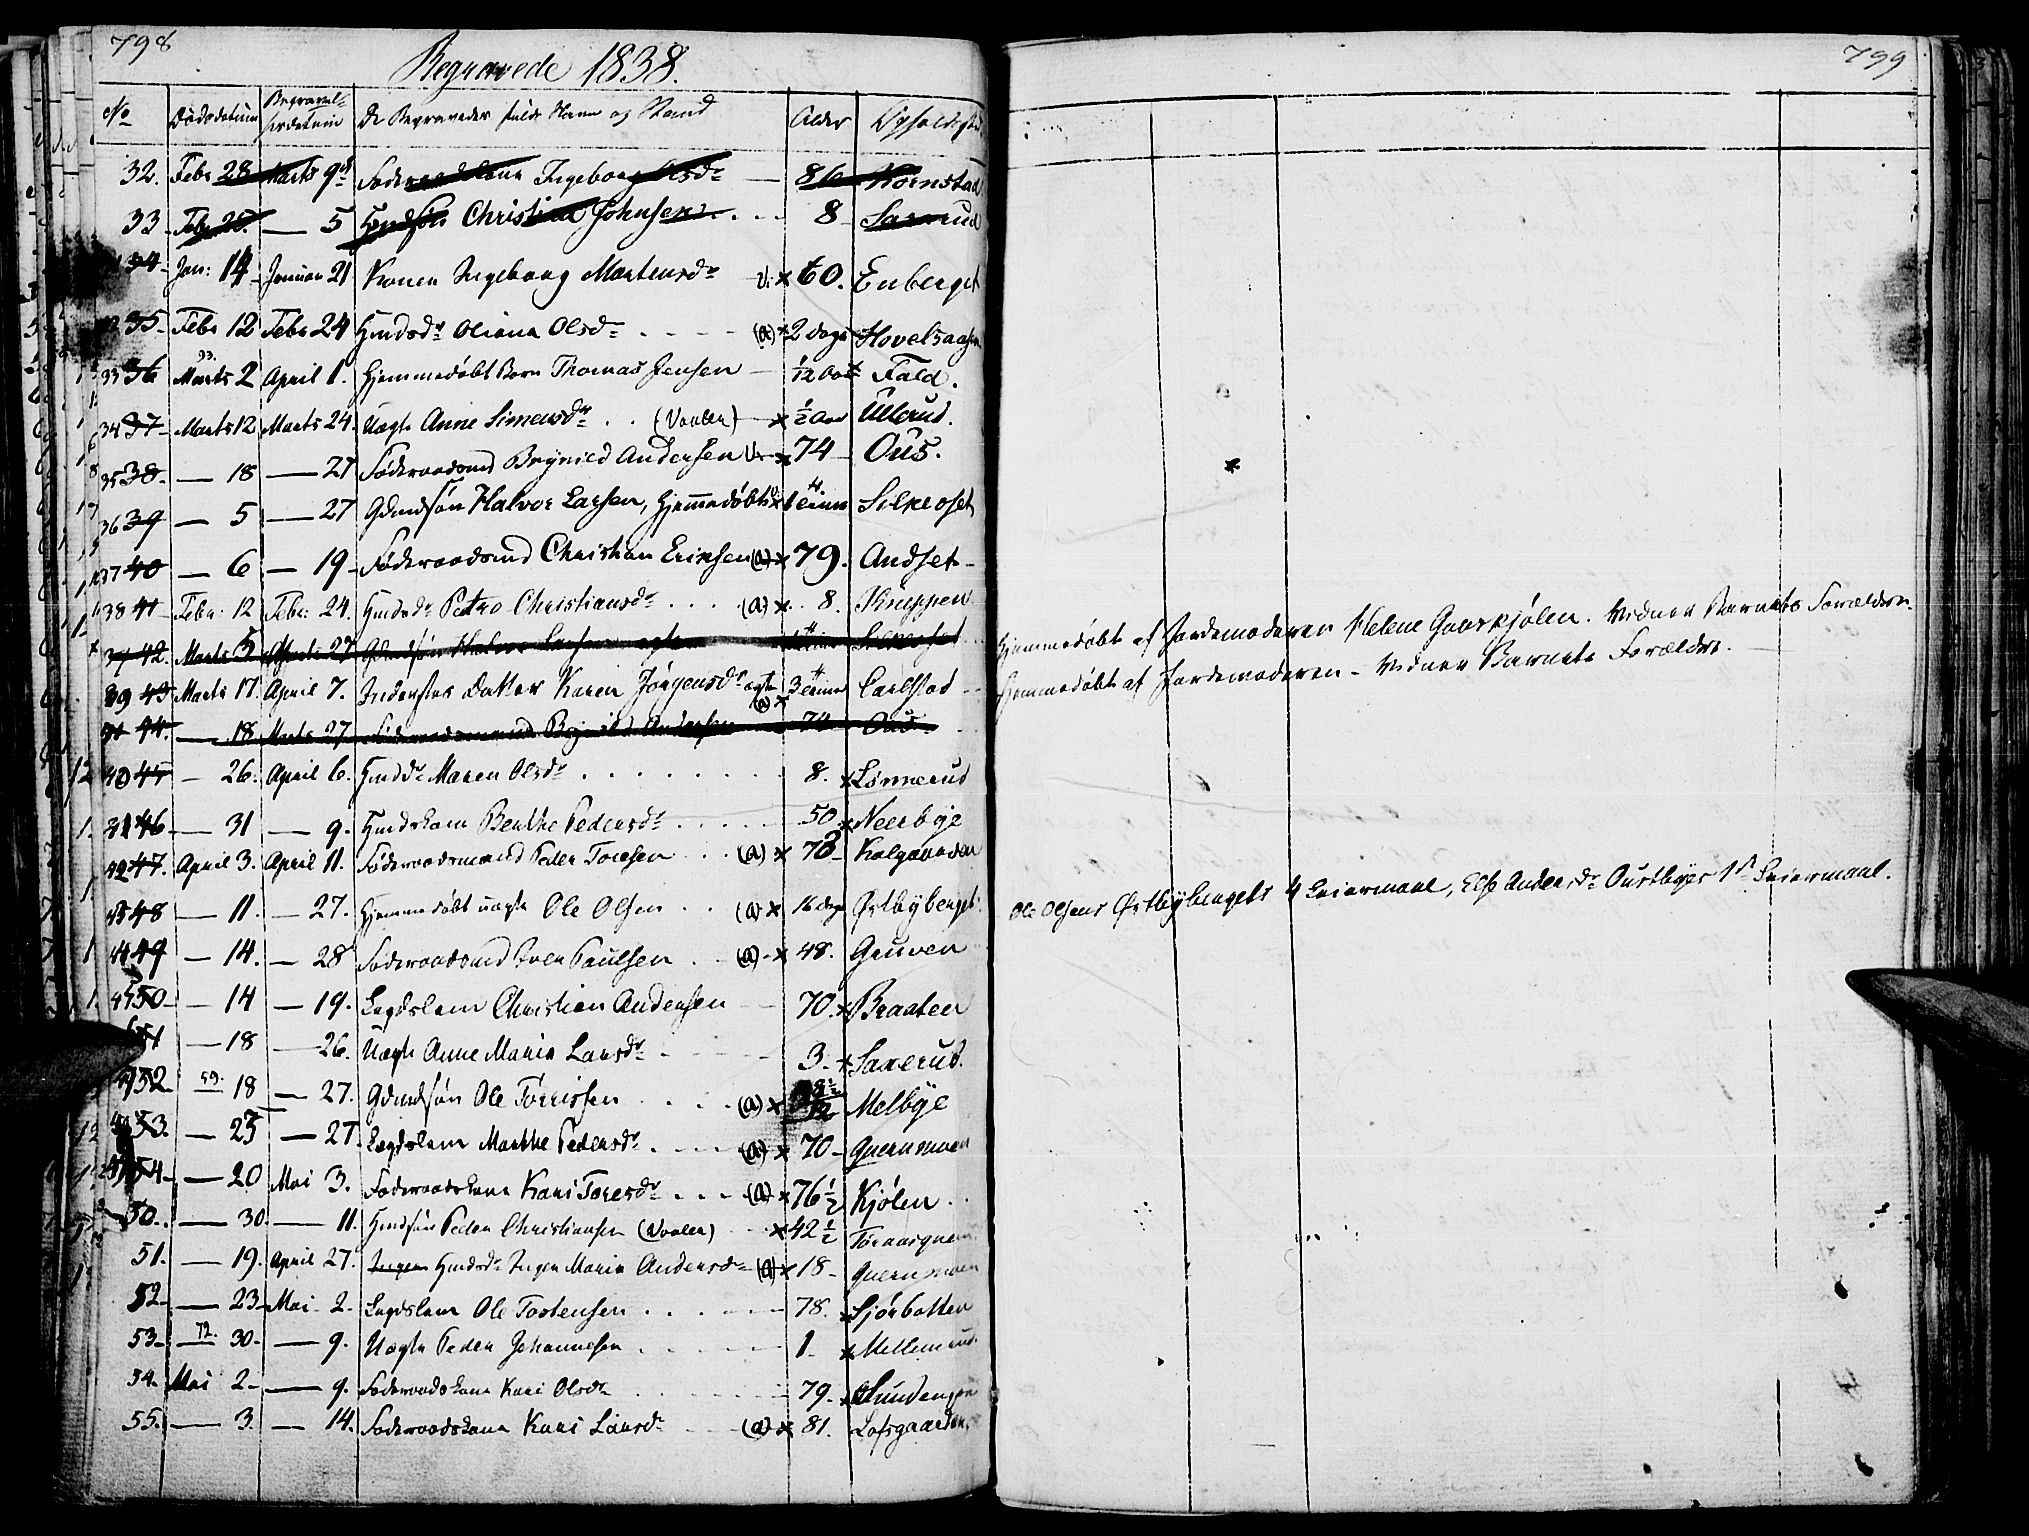 798
Begravede 1838.
No Dødsdatum Begravelsesdatum De Begravedes fulde Navn og Stand Alder Opholdssted
32. Febr 28 Marts 9 Ingeborg Olsdr 86 Kornstad
33 Febr 25. — 5 Christian Johnsen 8 Saxerud
34 Jan: 14 Januar 21 Konen Ingeborg Mortensdr × 60. Enberget
35 Febr 12 Febr 24 Hmdsdr Oliana Olsdr (a) × 2 Dage Hovelsaasen
33 36 Marts 2 April 1. Hjemmedøbt Barn Thomas Jensen 1/12 Fald.
34 37 Marts 12 Marts 24. Uægte Anne Simensdr (Vaaler) × 1/2 Aar Ullerud.
35 38 — 18 — 27 Føderaadsmd Brynild Andersen × 74 Ous.
36 39 — 5 — 27 Gdmdsøn Halvor Larsen, Hjemmedøbt Silkeoset
37 40 — 6 — 19 Føderaadsmd Christian Eriksen (a) × 79. Andset
38 41 Febr. 12 Febr: 24. Hmdsdr Petro Christiansdr (a) × 8. Knappen
42. Marts 5 27 Gdmdsøn Halvor Larsen ægte Silkeoset
39 43 Marts 17. April 7. Inderstes Datter Karen Jørgensdr ægte (a) × 3 Carlstad
44. — 18 Marts 27. Føderaadsmand Brynild Andersen 74 Ous
40 45 — 26. April 6. Hmdsdr Maren Olsdr 8. × Lønnerud
46 — 31 — 9. Hmdskone Berthe Pedersdr 50 × Neerbye
42 47. April 3. April 11. Føderaadsmand Peder Toresen (a) × 73 Kalgraaden
48 — 11. — 27. Hjemmedøbt uægte Ole Olsen (a) × 16 Dage Østbyberget
49 — 14. — 28 Føderaadsmd Iver Paulsen (a) × 48. Gruven
50 — 14 — 19. Lægdslem Christian Andersen 70. × Braaten
51 — 18 — 26. Uægte Anne Maria Larsdr 3. × Saxerud.
52 — 18 — 27. Gdmdsøn Ole Torrissen (a) × Melbye
53. — 25 — 27. Lægdslem Marthe Pedersdr (a) × 70 Quernmoen
54 — 20 Mai 3. Føderaadskone Kari Toresdr (a) × 76 1/2 Kjølen
50. — 30. — 11. Hmdsøn Peder Christiansen (Vaaler) × 42 1/2
51. — 19. April 27. Ingen Hmdsdr Inger Maria Andersdr (a) × 18 Quernmoen
52 — 23 Mai 2 Lægdslem Ole Tostensen 78. × Sjørbotten
53 — 30 — 9. Uægte Peder Johannesen 1 × Mellemrud.
54. Mai 2 — 9. Føderaadskone Kari Olsdr 79 ×
55. — 3. — 14. Føderaadskone Kari Larsdr (a) × 81. Lofsgaarden
799
Hjemmedøbt af Jordemoderen Helene Gaaskjølen. Vidner Barnets Forældre.
Hjemmedøbt af Jordemoderen — Vidner Barnets Forældre.
Ole Olsens Østbybergets 4 Leiermaal, Else Andersdr Oustbyes 1st Leiermaal.